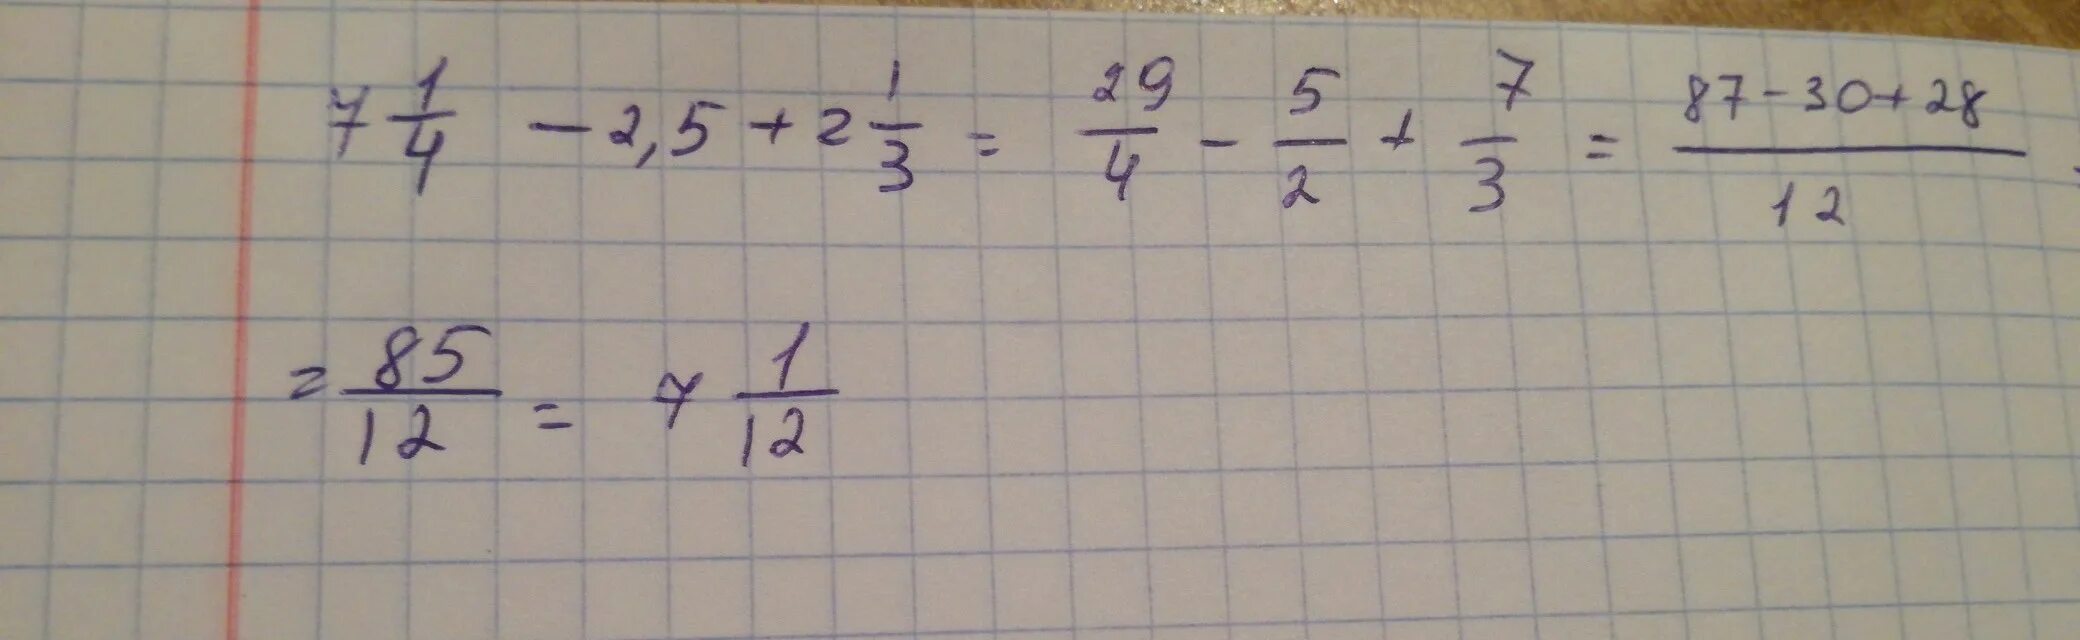 7 1/4 - 2,5 + 2 1/3 = 29/4 - 5/2 + 7/3 = (87-30+28)/12
= 85/12 = 7 1/12